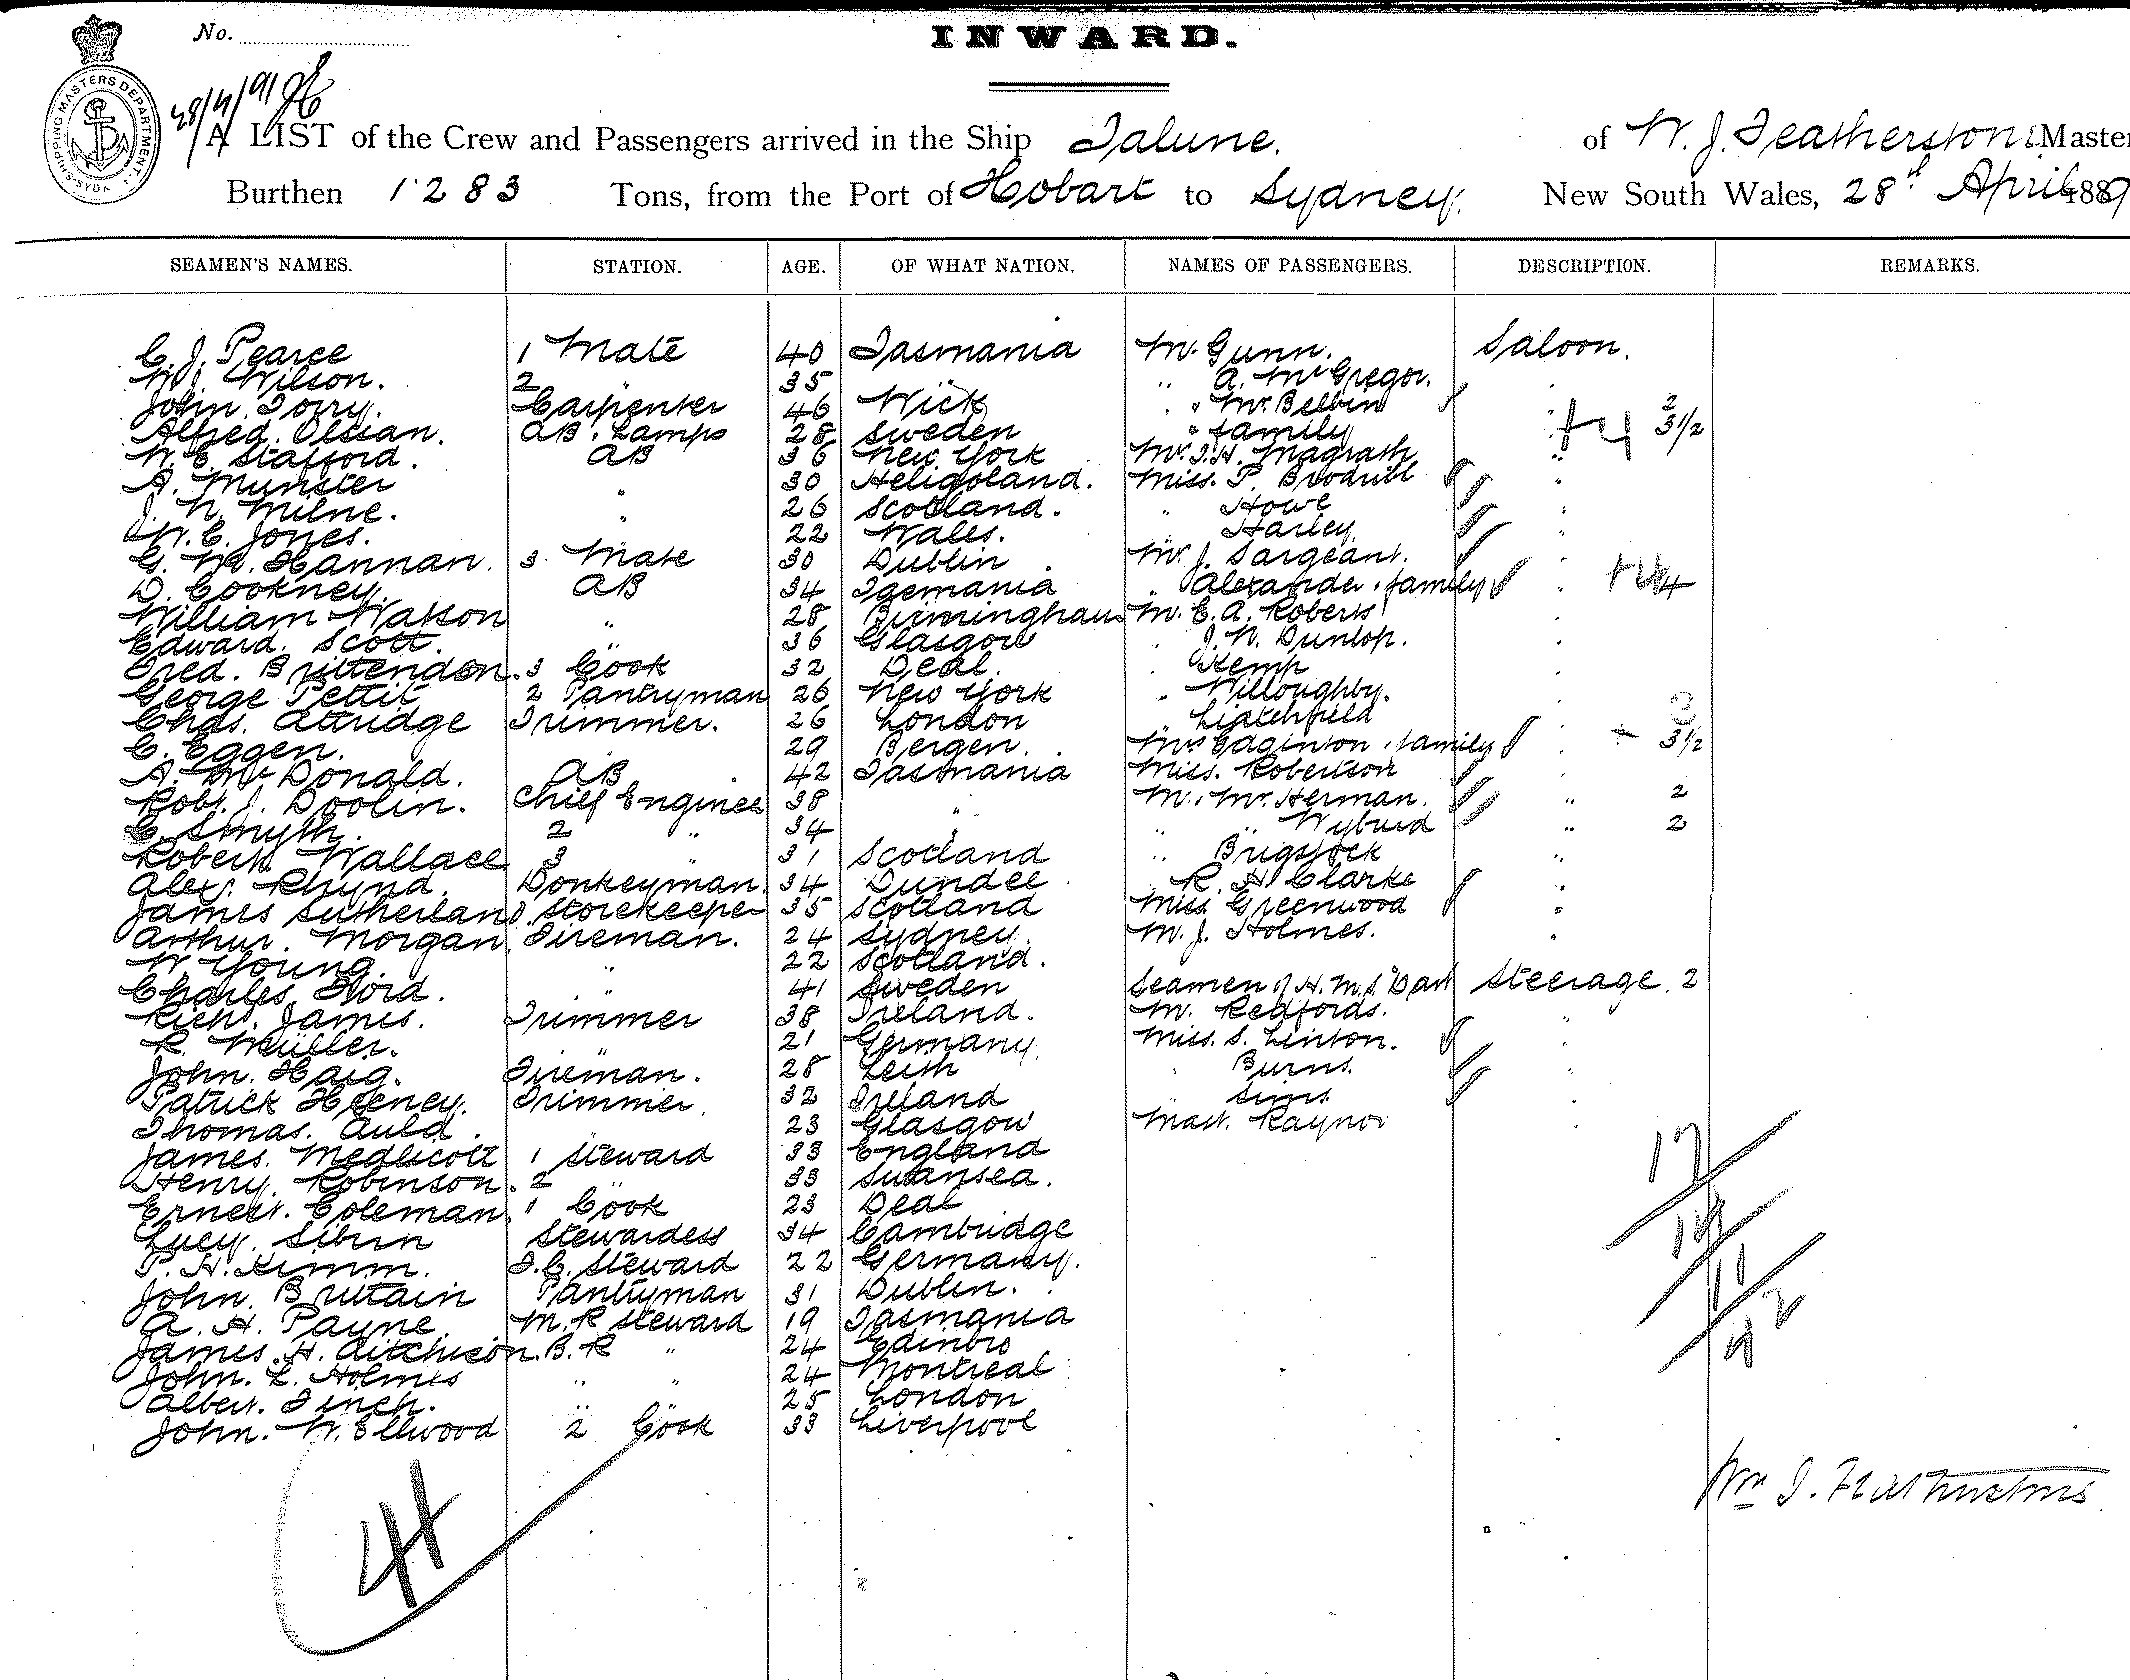 No.
INWARD.
SHIPPING MASTERS DEPARTMENT SYDY
28/4/91
A LIST of the Crew and Passengers arrived in the Ship Talune. of W. J. Featherstone Master
Burthen 1283 Tons, from the Port of Hobart to Sydney. New South Wales, 28th April 188
SEAMEN'S NAMES. STATION. AGE. OF WHAT NATION. NAMES OF PASSENGERS. DESCRIPTION. REMARKS.
C. J. Pearce 1 Mate 40 Tasmania Mr. Gunn. Saloon.
W. J. Wilson. 2 " 35 " A. McGregor. "
John. Torry. Carpenter 46 Wick " Mrs. Belbin "
Alfred. Olssan. AB. Lamps 28 Sweden " family 2 3 1/2
W. E. Stafford. AB 36 New York Mr. J. H. Magrath "
A. Munster 30 Heligoland. Miss. P. Brodribb "
J. N. Milne. " 26 Scotland. " Howe "
W. E. Jones. 22 Wales. " Harley. "
G. W. Hannan. 3. Mate 30 Dublin Mr. J. Sargeant. "
D. Cockney. AB 34 Tasmania " Alexander . family "
William Watson " 28 Birmingham Mr. E. A. Roberts "
Edward. Scott. " 36 Glasgow " J. N. Dunlop. "
Fred. Brittenden. 3 Cook 32 Deal. " Kemp "
George Pettit 2 Pantryman 26 New York " Willoughby. "
Chas. Attridge Trimmer. 26 London " Liatchfield "
C. Eggen. " 29 Bergen. Mrs Edginton . family " 3 1/2
A. McDonald. AB 42 Tasmania Miss. Robertson "
Robt. J. Doolin. Chief Engineer 38 " Mr. Mrs. Herman. " 2
C. Smyth. 2 " 34 " " " Wyburd " 2
Robert. Wallace 3 " 31 Scotland " Brigstock "
Alex. Rhynd. Donkeyman. 34 Dundee " R. H. Clarke "
James Sutherland. Storekeeper 35 Scotland Miss Greenwood "
Arthur. Morgan. Fireman. 24 Sydney. Mr. J. Holmes. "
W. Young. " 22 Scotland.
Charles. Nord. " 41 Sweden Seamen of H.M.S "Dart Steerage. 2
Richd. James. Trimmer 38 Ireland. Mr. Redfords. "
R. Müller. " 21 Germany. Miss. S. Linton. "
John. Haig. Fireman. 28 Leith " Burns. "
Patrick Heeney. Trimmer. 32 Ireland " Sims.
Thomas. Auld. " 23 Glasgow Mast. Raynor "
James. Medlicott 1 Steward 33 England 17
Henry. Robinson. 2 " 33 Swansea.
Ernest. Coleman. 1 Cook 23 Deal
Lucy. Sibun Stewardess 34 Cambridge
P. H. Kimm. F.C. Steward 22 Germany. 11
John. Brittain Pantryman 31 Dublin. 2
A. H. Payne. M. R Steward 19 Tasmania
James. H. Aitchison. B. R " 24 Edinbro
John. L. Holmes " " 24 Montreal
Albert. Finch. " " 25 London
John. W. Ellwood 2 Cook 33 Liverpool
41
Wm J. Featherstone